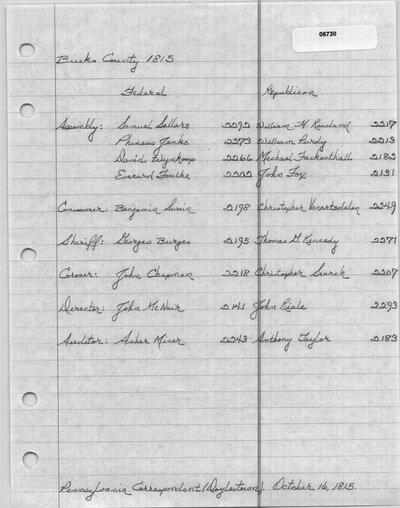 06730
Bucks County 1815
Federal Republican
Assembly: Samuel Sellars 2292 William H. Rowland 2217
Phineas Jenks 2273 William Purdy 2213
David Wynkoop 2266 Michael Fackenthall 2182
Everard Foulke 2202 John Fox 2131
Commissioner: Benjamin Swain 2198 Christopher Vanartsdalen 2249
Sheriff: Georges Burges 2195 Thomas G. Kennedy 2271
Coroner: John Chapman 2218 Christopher Search 2207
Director: John McNair 2141 John Riale 2293
Auditor: Asher Miner 2243 Anthony Taylor 2183
Pennsylvania Correspondent (Doylestown). October 16, 1815.